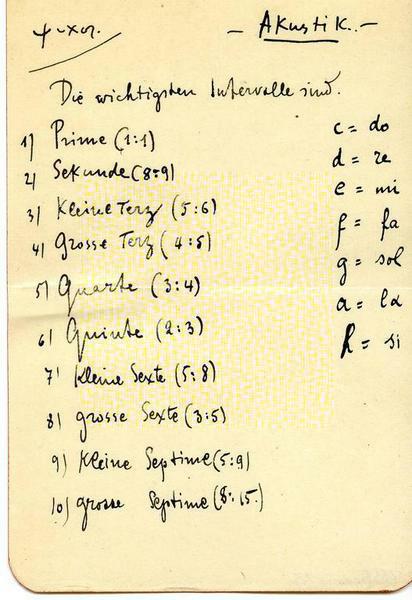 – Akustik. –
Die wichtigsten Intervalle sind.
1) Prime (1:1)
2) Sekunde (8:9)
3) Kleine Terz (5:6)
4) Grosse Terz (4:5)
5) Quarte (3:4)
6) Quinte (2:3)
7) Kleine Sexte (5:8)
8) grosse Sexte (3:5)
9) Kleine Septime (5:9)
10) grosse Septime (8:15.)
c = do
d = re
e = mi
f = fa
g = sol
a = la
h = si